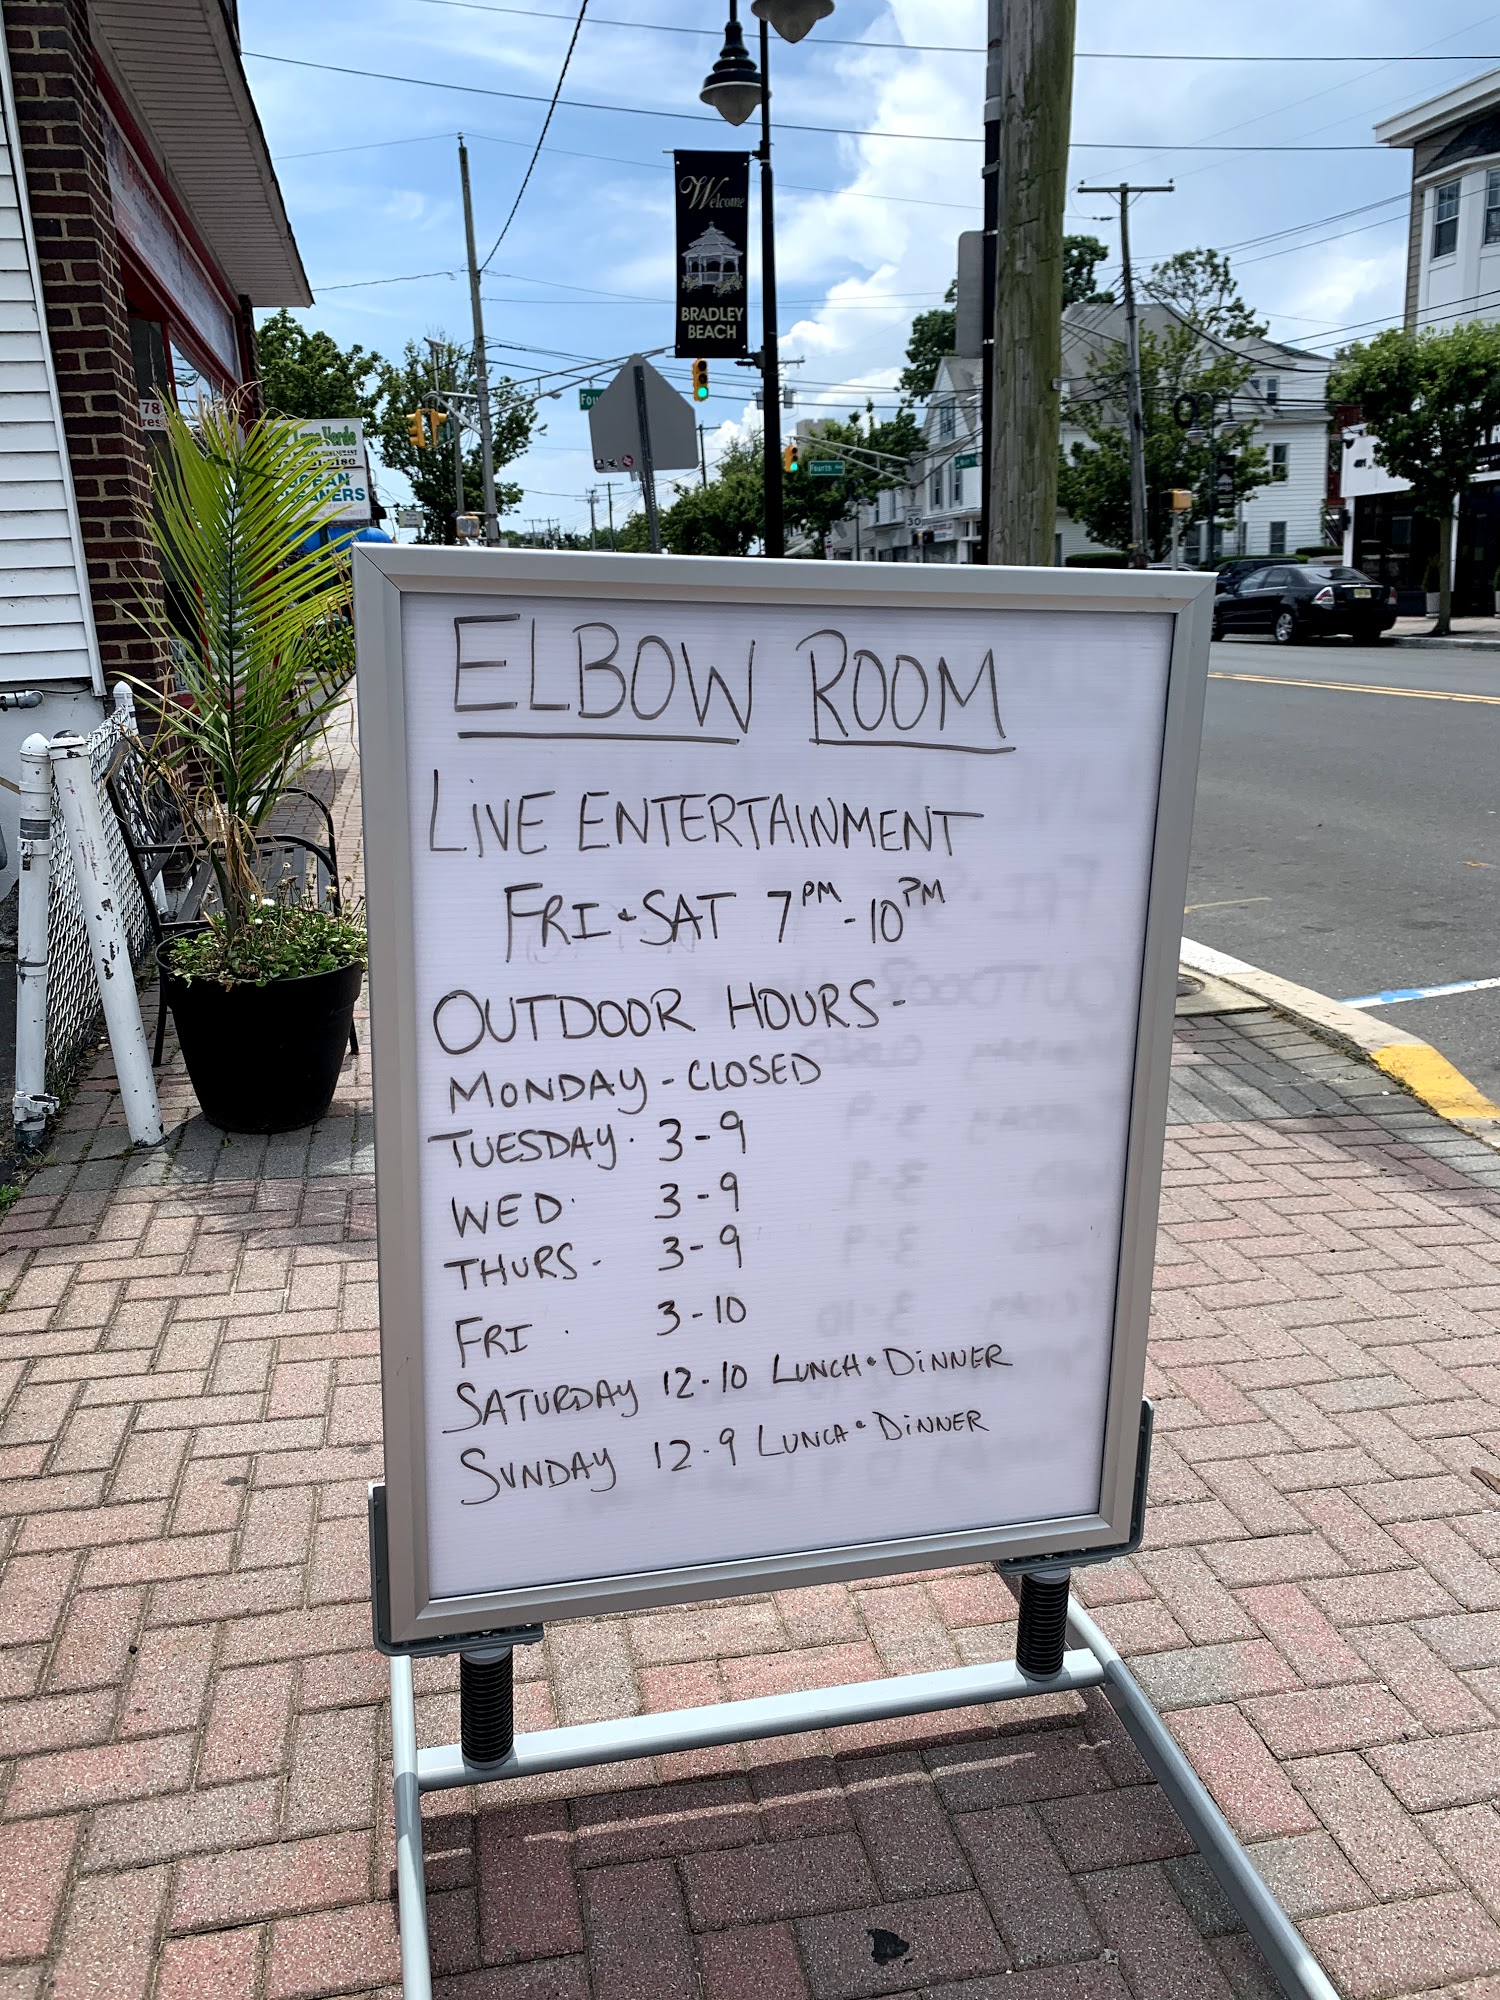 Welcome
BRADLEY
BEACH
Fourth Ave
30
ELBOW ROOM
LiVE ENTERTAINMENT
FRI & SAT 7PM - 10PM
OUTDOOR HOURS -
MONDAY - CLOSED
TUESDAY · 3 - 9
WED · 3 - 9
THURS - 3 - 9
FRI · 3 - 10
SATURDAY 12 - 10 LUNCH & DiNNER
SUNDAY 12 - 9 LUNCH & DiNNER